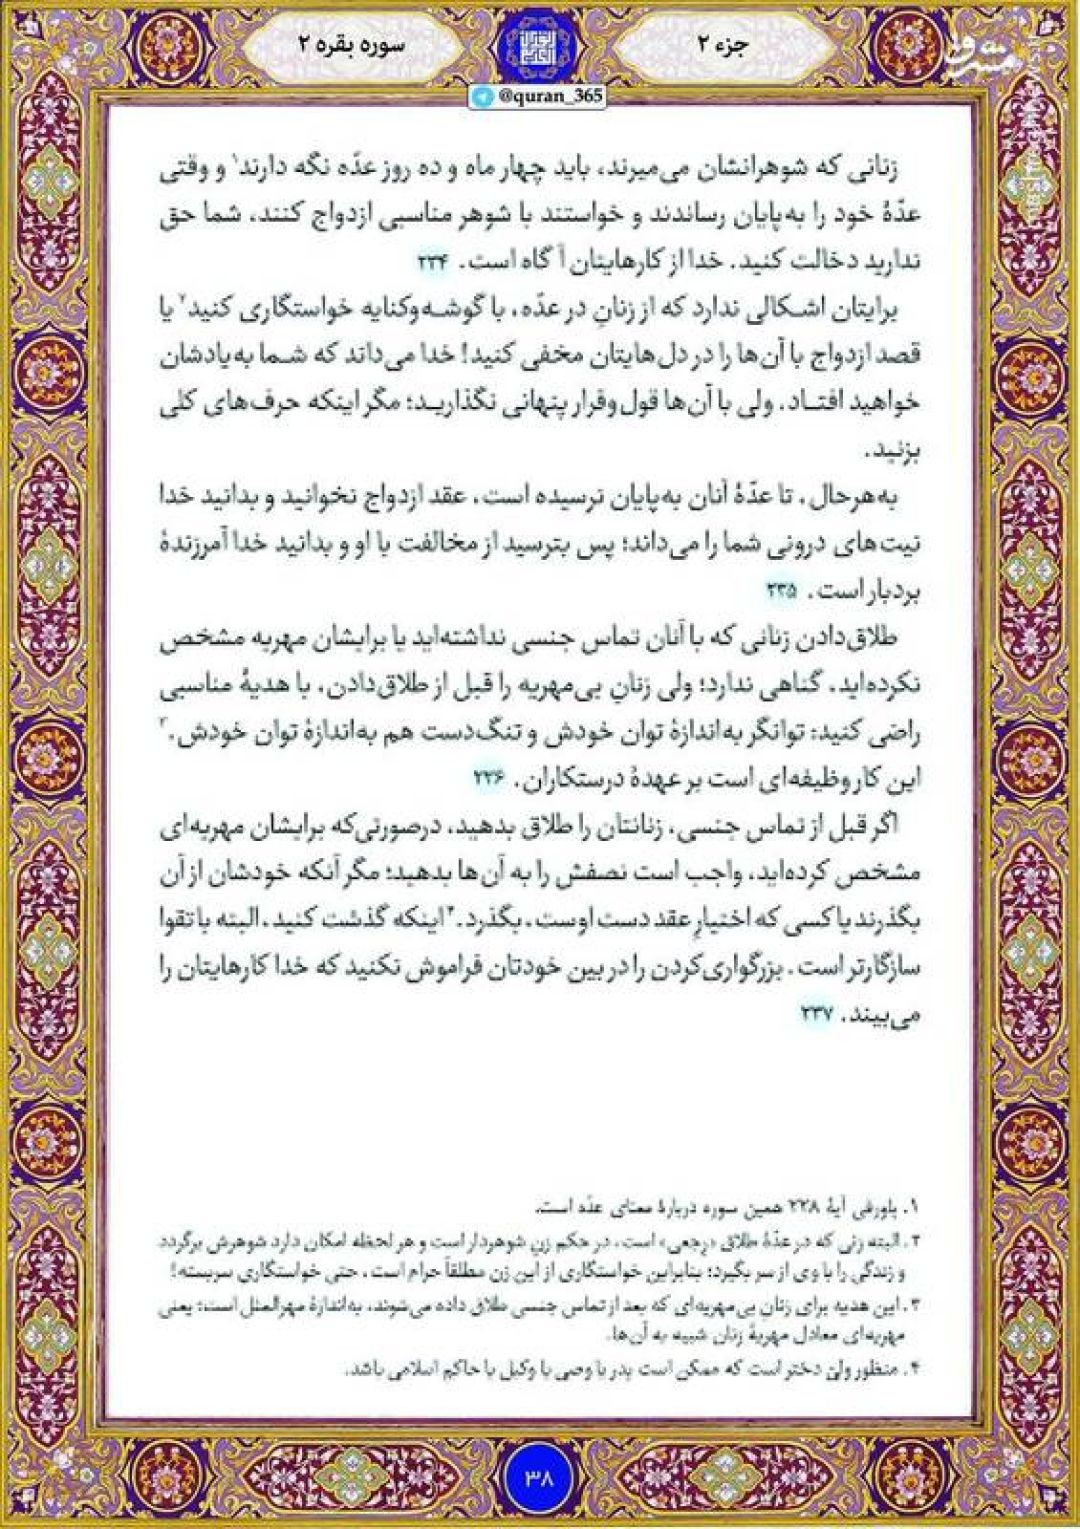 جزء ۲
سوره بقره ۲
@quran_365
زنانی که شوهرانشان می‌میرند، باید چهار ماه و ده روز عدّه نگه دارند۱ و وقتی
عدّهٔ خود را به‌پایان رساندند و خواستند با شوهر مناسبی ازدواج کنند، شما حق
ندارید دخالت کنید. خدا از کارهایتان آگاه است. ۲۳۴
برایتان اشکالی ندارد که از زنانِ در عدّه، با گوشه‌وکنایه خواستگاری کنید۲ یا
قصد ازدواج با آن‌ها را در دل‌هایتان مخفی کنید! خدا می‌داند که شما به‌یادشان
خواهید افتاد. ولی با آن‌ها قول‌وقرار پنهانی نگذارید؛ مگر اینکه حرف‌های کلی
بزنید.
به‌هرحال، تا عدّهٔ آنان به‌پایان نرسیده است، عقد ازدواج نخوانید و بدانید خدا
نیت‌های درونی شما را می‌داند؛ پس بترسید از مخالفت با او و بدانید خدا آمرزندهٔ
بردبار است. ۲۳۵
طلاق‌دادن زنانی که با آنان تماس جنسی نداشته‌اید یا برایشان مهریه مشخص
نکرده‌اید، گناهی ندارد؛ ولی زنانِ بی‌مهریه را قبل از طلاق‌دادن، با هدیهٔ مناسبی
راضی کنید: توانگر به‌اندازهٔ توان خودش و تنگ‌دست هم به‌اندازهٔ توان خودش.۳
این کار وظیفه‌ای است بر عهدهٔ درستکاران. ۲۳۶
اگر قبل از تماس جنسی، زنانتان را طلاق بدهید، درصورتی‌که برایشان مهریه‌ای
مشخص کرده‌اید، واجب است نصفش را به آن‌ها بدهید؛ مگر آنکه خودشان از آن
بگذرند یا کسی که اختیارِ عقد دست اوست، بگذرد.۴ اینکه گذشت کنید، البته با تقوا
سازگارتر است. بزرگواری‌کردن را در بین خودتان فراموش نکنید که خدا کارهایتان را
می‌بیند. ۲۳۷
۱. پاورقی آیهٔ ۲۲۸ همین سوره دربارهٔ معنای عدّه است.
۲. البته زنی که در عدّهٔ طلاق «رجعی» است، در حکم زنِ شوهردار است و هر لحظه امکان دارد شوهرش برگردد
و زندگی را با وی از سر بگیرد؛ بنابراین خواستگاری از این زن مطلقاً حرام است، حتی خواستگاری سربسته!
۳. این هدیه برای زنانِ بی‌مهریه‌ای که بعد از تماس جنسی طلاق داده می‌شوند، به‌اندازهٔ مهرالمثل است؛ یعنی
مهریه‌ای معادل مهریهٔ زنان شبیه به آن‌ها.
۴. منظور ولیّ دختر است که ممکن است پدر یا وصی یا وکیل یا حاکم اسلامی باشد.
۳۸